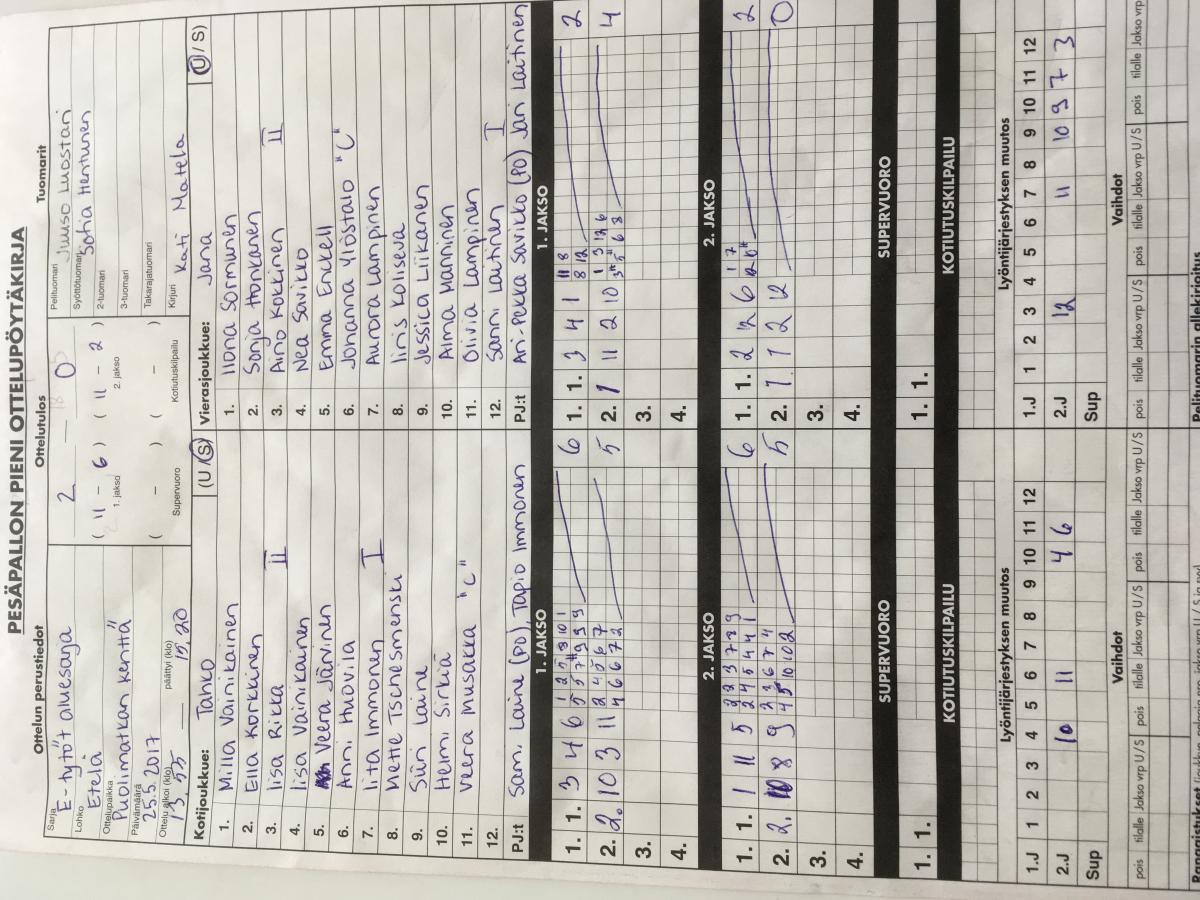 PESÄPALLON PIENI OTTELUPÖYTÄKIRJA
Ottelun perustiedot
Ottelutulos
Tuomarit
Sarja
E-tytöt aluesarja
Lohko
Etelä
Ottelupaikka
Puolimatkan kenttä
Päivämäärä
25.5.2017
Ottelu alkoi (klo)
13.55
päättyi (klo)
15.20
2 – 0
( 11 – 6 ) ( 11 – 2 )
1. jakso
2. jakso
( – ) ( – )
Supervuoro
Kotiutuskilpailu
Pelituomari
Juuso Luostari
Syöttötuomari
Sofia Hentunen
2-tuomari
3-tuomari
Takarajatuomari
Kirjuri Kati Mattela
Kotijoukkue: Tahko (U/S)
1. Milla Vainikainen
2. Ella Korkkinen
3. Iisa Rikka II
4. Iisa Vainikainen
5. Veera Järvinen
6. Anni Huovila
7. Iita Immonen I
8. Mette Tschesmenski
9. Siiri Laine
10. Hemi Sirkiä
11. Veera Musakka "C"
12.
PJ:t Sami Laine (PO), Tapio Immonen
Vierasjoukkue: Jana (U/S)
1. Ilona Sormunen
2. Sonja Honkanen
3. Aino Kokkinen II
4. Nea Savikko
5. Emma Enckell
6. Johanna Ylöstalo "C"
7. Aurora Lampinen
8. Iiris Koliseva
9. Jessica Liikanen
10. Alma Manninen
11. Olivia Lampinen
12. Sanni Laitinen I
PJ:t Ari-Pekka Savikko (PO) Jari Laitinen
1. JAKSO
1. JAKSO
1. 1. 3 4 6 6
2. 2. 10 3 11 5
3.
4.
1. 1. 3 4 1 2
2. 1 11 2 10 4
3.
4.
2. JAKSO
2. JAKSO
1. 1. 1 11 5 6
2. 2. 8 9 5
3.
4.
1. 1. 2 12 6 2
2. 1. 1 2 12 0
3.
4.
SUPERVUORO
SUPERVUORO
1. 1.
1. 1.
KOTIUTUSKILPAILU
KOTIUTUSKILPAILU
Lyöntijärjestyksen muutos
Lyöntijärjestyksen muutos
1.J 1 2 3 4 5 6 7 8 9 10 11 12
2.J 10 11 4 6
Sup
1.J 1 2 3 4 5 6 7 8 9 10 11 12
2.J 12 11 10 9 7 3
Sup
Vaihdot
Vaihdot
pois tilalle Jakso vrp U/S pois tilalle Jakso vrp U/S pois tilalle Jakso vrp U/S
pois tilalle Jakso vrp U/S pois tilalle Jakso vrp U/S pois tilalle Jakso vrp
Rangaistukset
Pelituomarin allekirjoitus